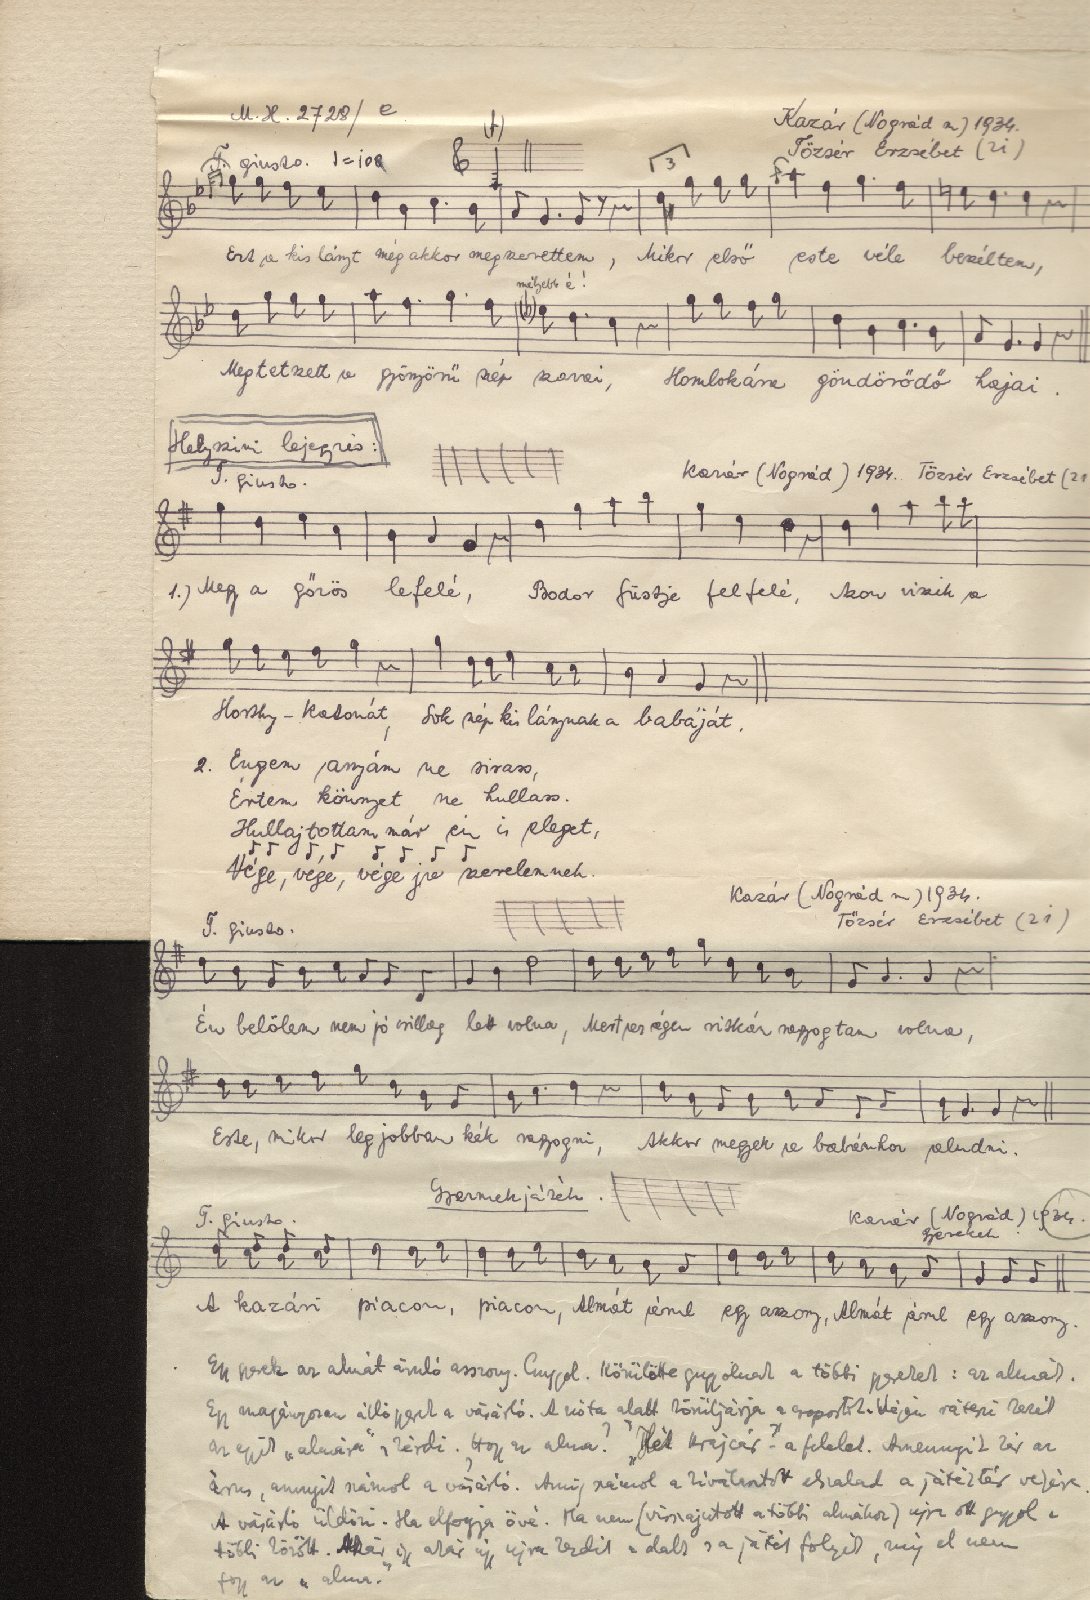 M.H. 2728/e
Kazár (Nográd m) 1934.
Tőzsér Erzsébet (21)
T. giusto. ♩=100
3
Ezt a kis lányt még akkor megszerettem, Mikor első este véle beszéltem,
mélyebb é!
Megtetszett a gyönyörű szép szavai, Homlokára göndörödő hajai.
Helyszini lejegyzés:
T. giusto.
Kazár (Nográd) 1934. Tőzsér Erzsébet (21
1.) Megy a gőzös lefelé, Bodor füstje felfelé, Azon viszik a
Horthy-katonát, Sok szép kis lánynak a babáját.
2. Engem anyám ne sirass,
Értem könnyet ne hullass.
Hullajtottam már én is eleget,
Vége, vége, vége a szerelemnek.
Kazár (Nográd m) 1934.
Tőzsér Erzsébet (21)
T. giusto.
Én belőlem nem jó csillag lett volna, Mert az égen ritkán ragyogtam volna,
Este, mikor legjobban kék ragyogni, Akkor megyek a babámhoz aludni.
Gyermekjáték.
T. giusto.
Kazár (Nográd) 1934.
gyerekek
A kazári piacon, piacon, Almát árul egy asszony, Almát árul egy asszony.
Egy gyerek az almát áruló asszony. Guggol. Körülötte guggolnak a többi gyerekek: az almák.
Egy magányosan álló gyerek a vásárló. A nóta alatt körüljárja a csoportot. Végén ráteszi kezét
az egyik „almára" s kérdi: Hogy az alma? „Hét krajcár" - a felelet. Amennyit kér az
árus, annyit számol a vásárló. Amíg számol a kiválasztott elszalad a játéktér végére.
A vásárló üldözi. Ha elfogja övé. Ha nem (visszajutott a többi almához) ujra ott guggol a
többi között. Akár így akár úgy ujra kezdik a dalt s a játék folyik, míg el nem
fogy az „alma."